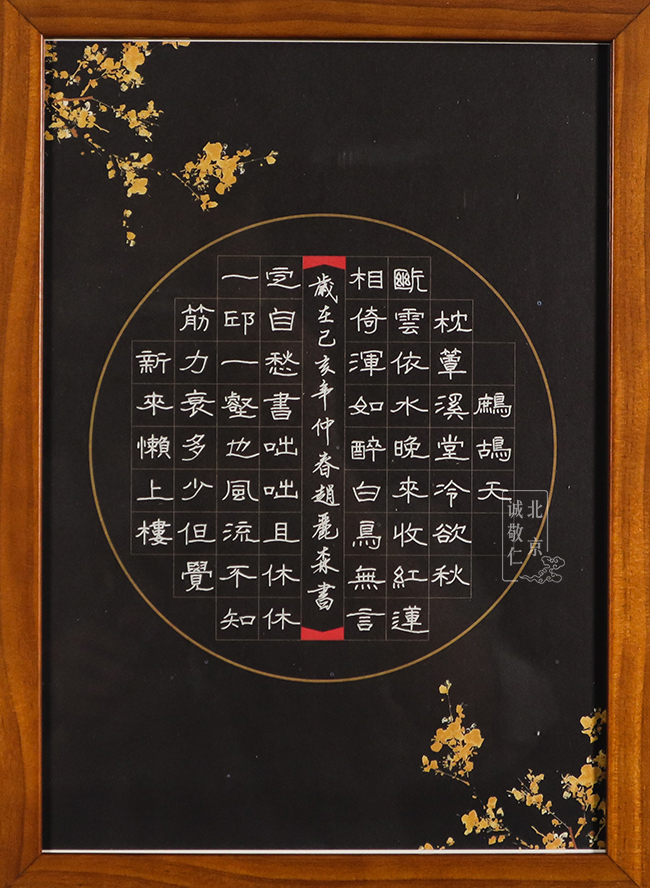 鷓鴣天
枕簟溪堂冷欲秋
斷雲依水晚來收紅蓮
相倚渾如醉白鳥無言
歲在己亥年仲春趙麗森書
定自愁書咄咄且休休
一邱一壑也風流不知
筋力衰多少但覺
新來懶上樓
北京
诚敬仁